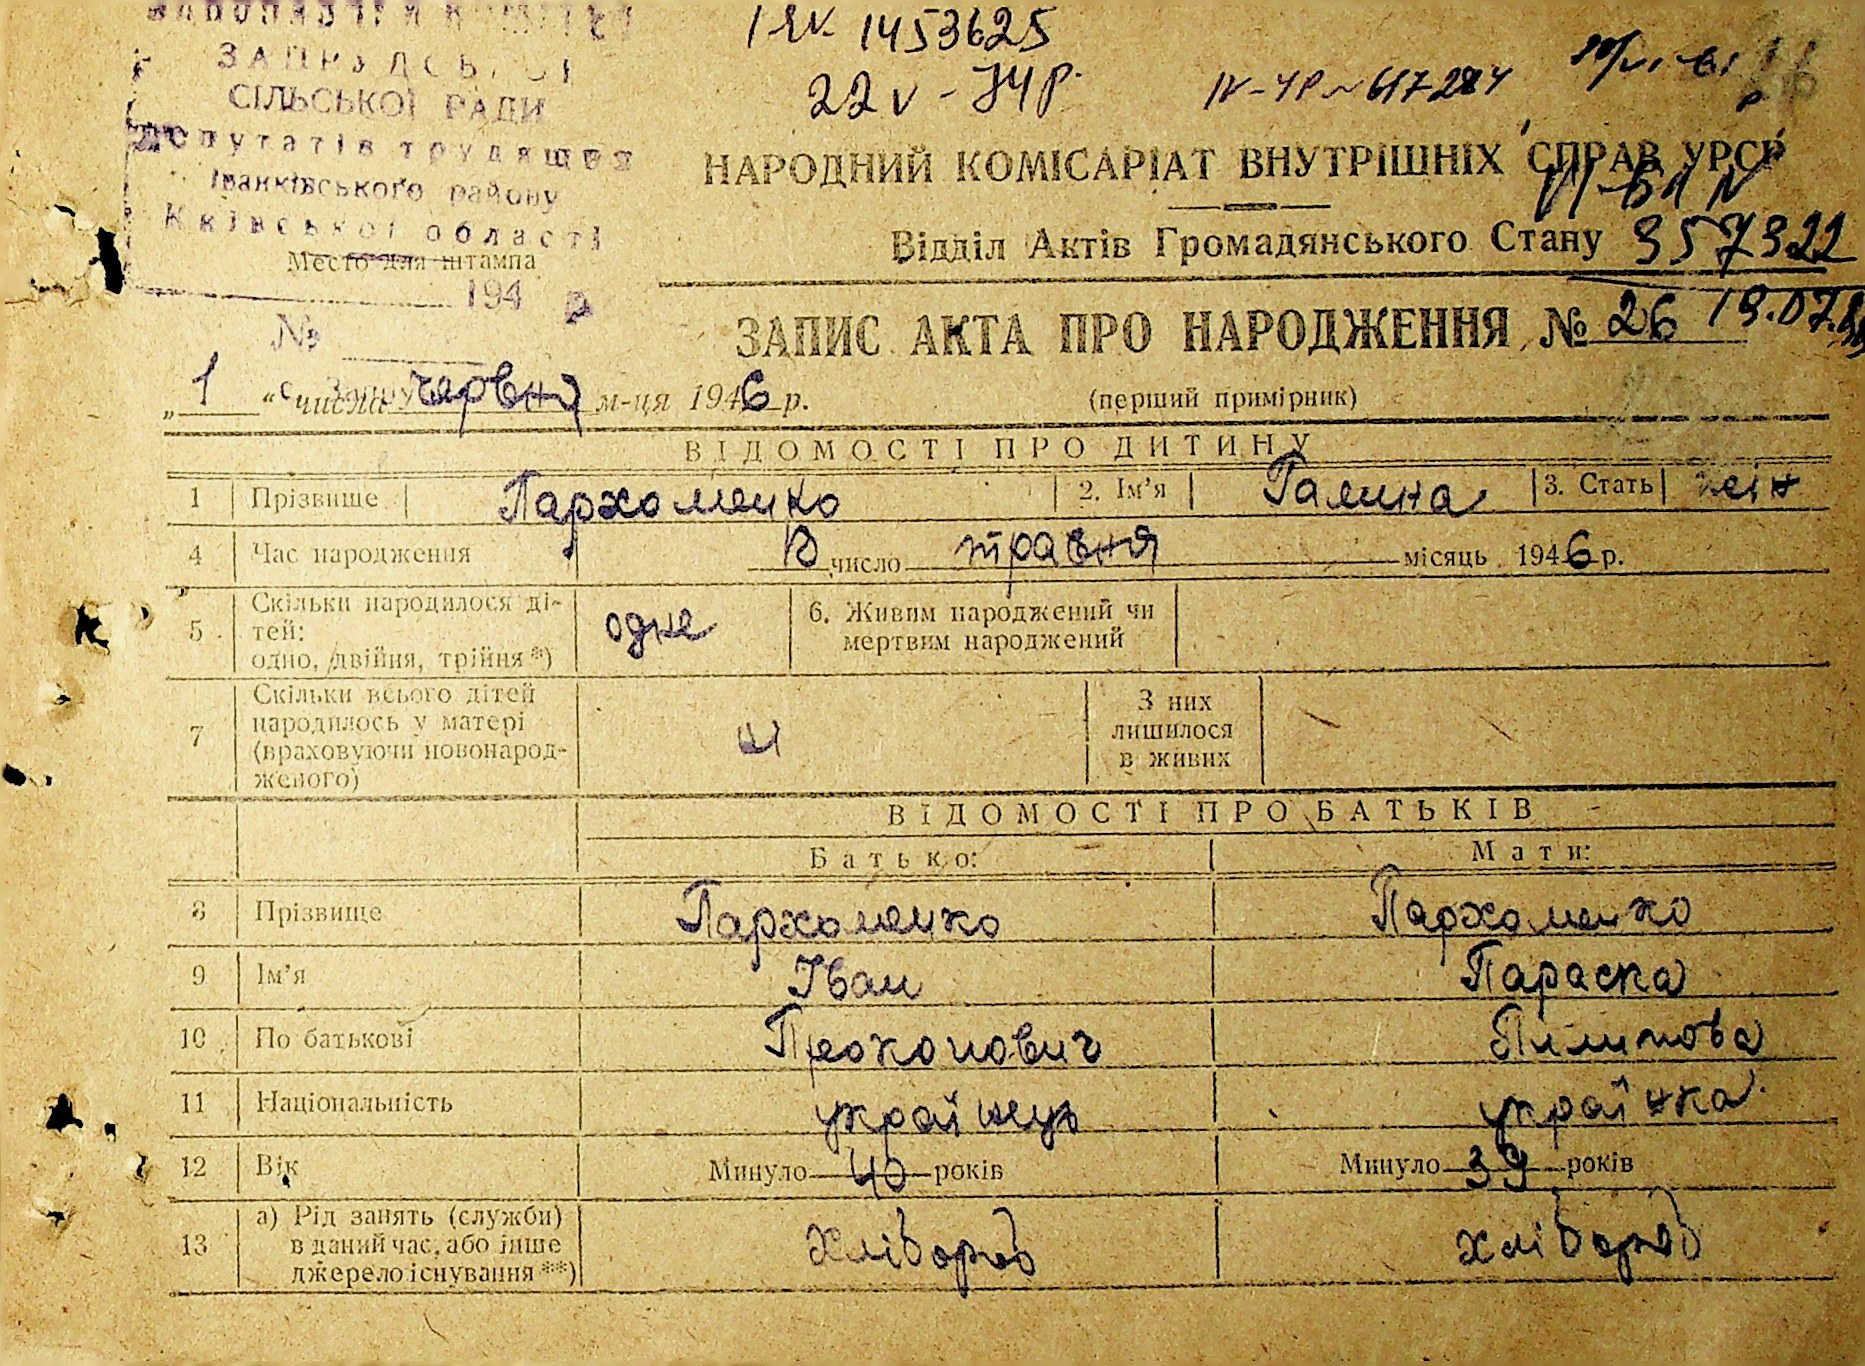 ЗАПРУДСЬКОЇ
СІЛЬСЬКОЇ РАДИ
Депутатів трудящих
Іванківського району
Київської області
Место для штампа
194 р
№
1453625
22 V - 74 р.
НАРОДНИЙ КОМІСАРІАТ ВНУТРІШНІХ СПРАВ УРСР
Відділ Актів Громадянського Стану 357322
ЗАПИС АКТА ПРО НАРОДЖЕННЯ № 26 19.07.
„ 1 “ числа червня м-ця 1946 р. (перший примірник)
ВІДОМОСТІ ПРО ДИТИНУ
1 Прізвище Пархоменко 2. Ім'я Галина 3. Стать жін
4 Час народження число травня місяць 1946 р.
5 Скільки народилося дітей: одно, двійня, трійня *) одне 6. Живим народжений чи мертвим народжений
7 Скільки всього дітей народилось у матері (враховуючи новонародженого) З них лишилося в живих
ВІДОМОСТІ ПРО БАТЬКІВ
Батько: Мати:
8 Прізвище Пархоменко Пархоменко
9 Ім'я Іван Параска
10 По батькові Прокопович Пилипова
11 Національність українець українка
12 Вік Минуло 40 років Минуло 39 років
13 а) Рід занять (служби) в даний час, або інше джерело існування **) хлібороб хлібороб